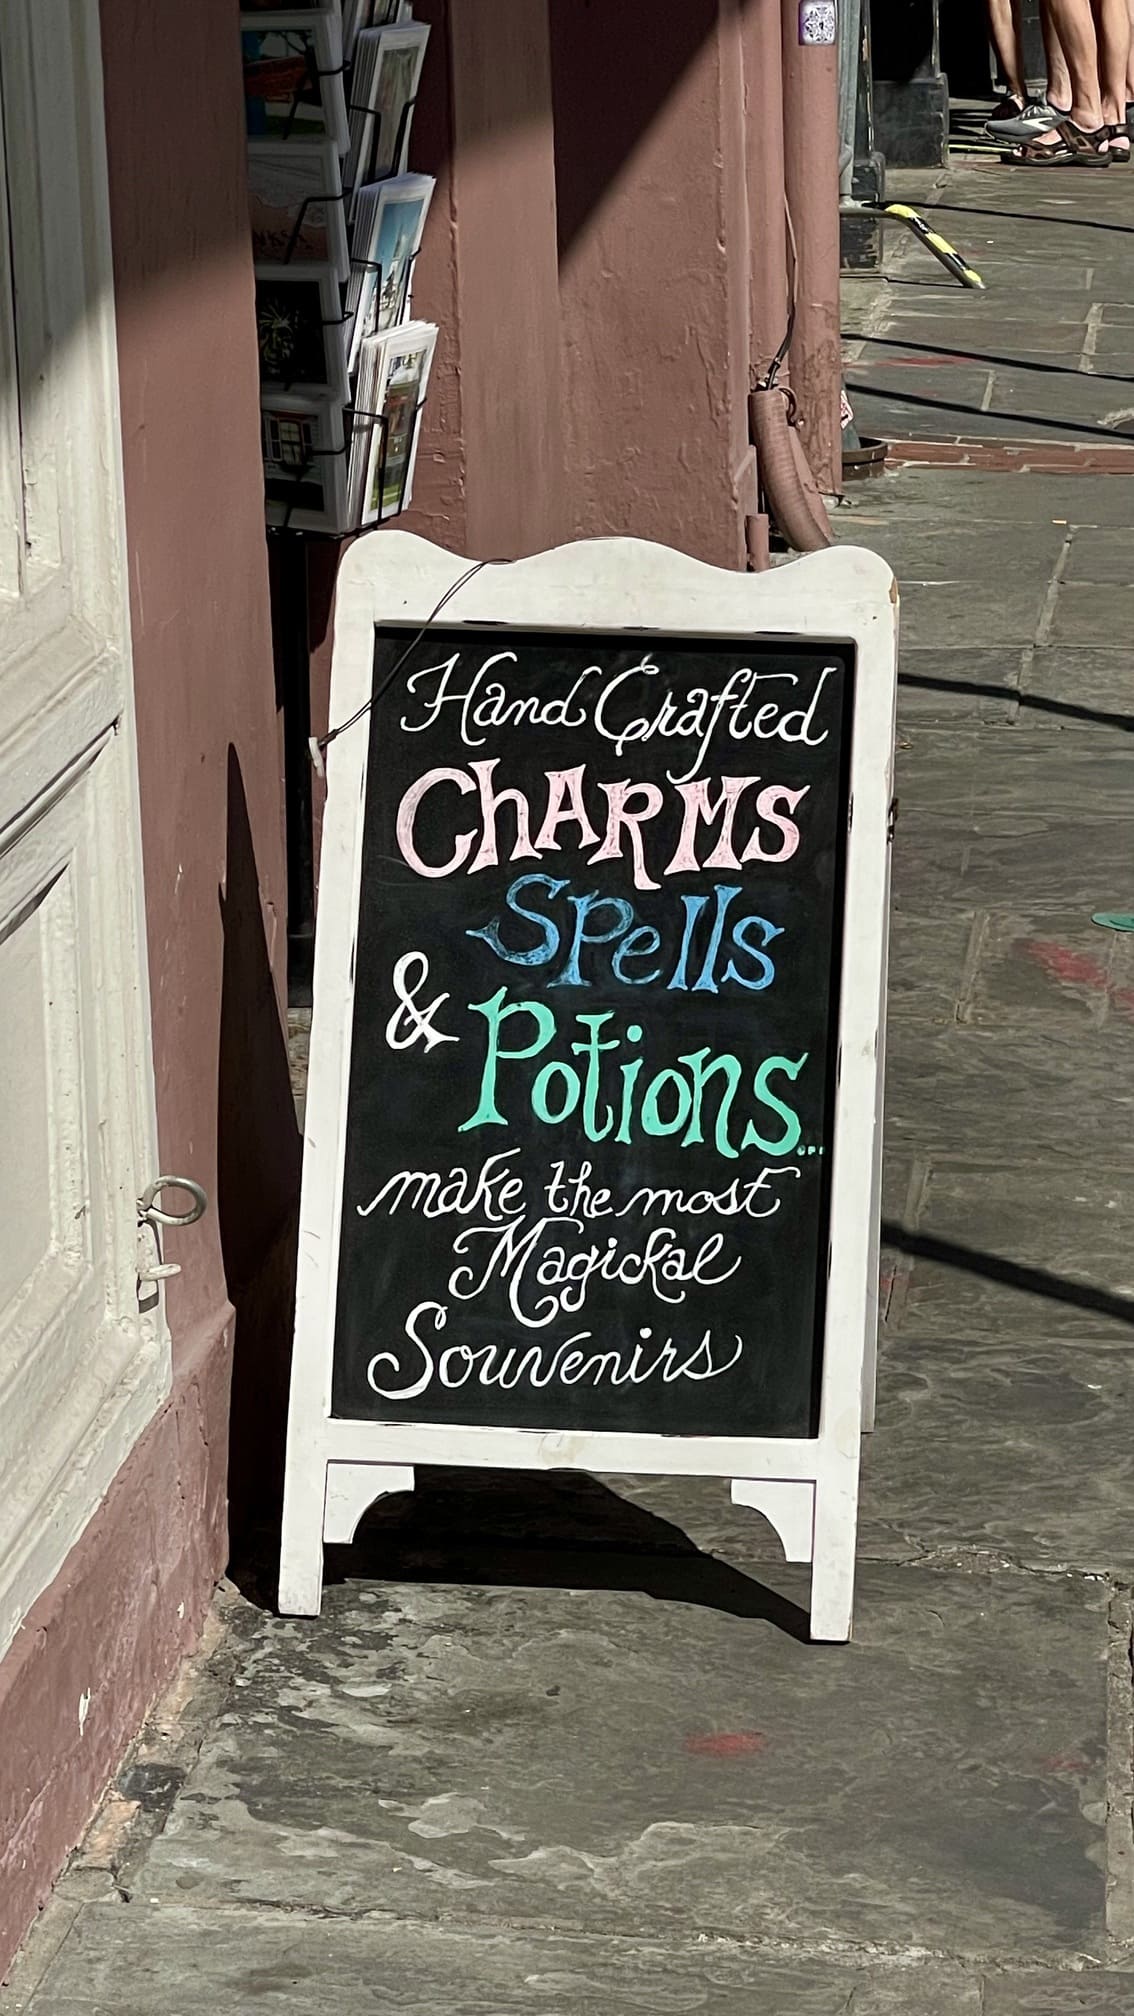 Hand Crafted
ChARMs
Spells
& Potions...
make the most
Magickal
Souvenirs